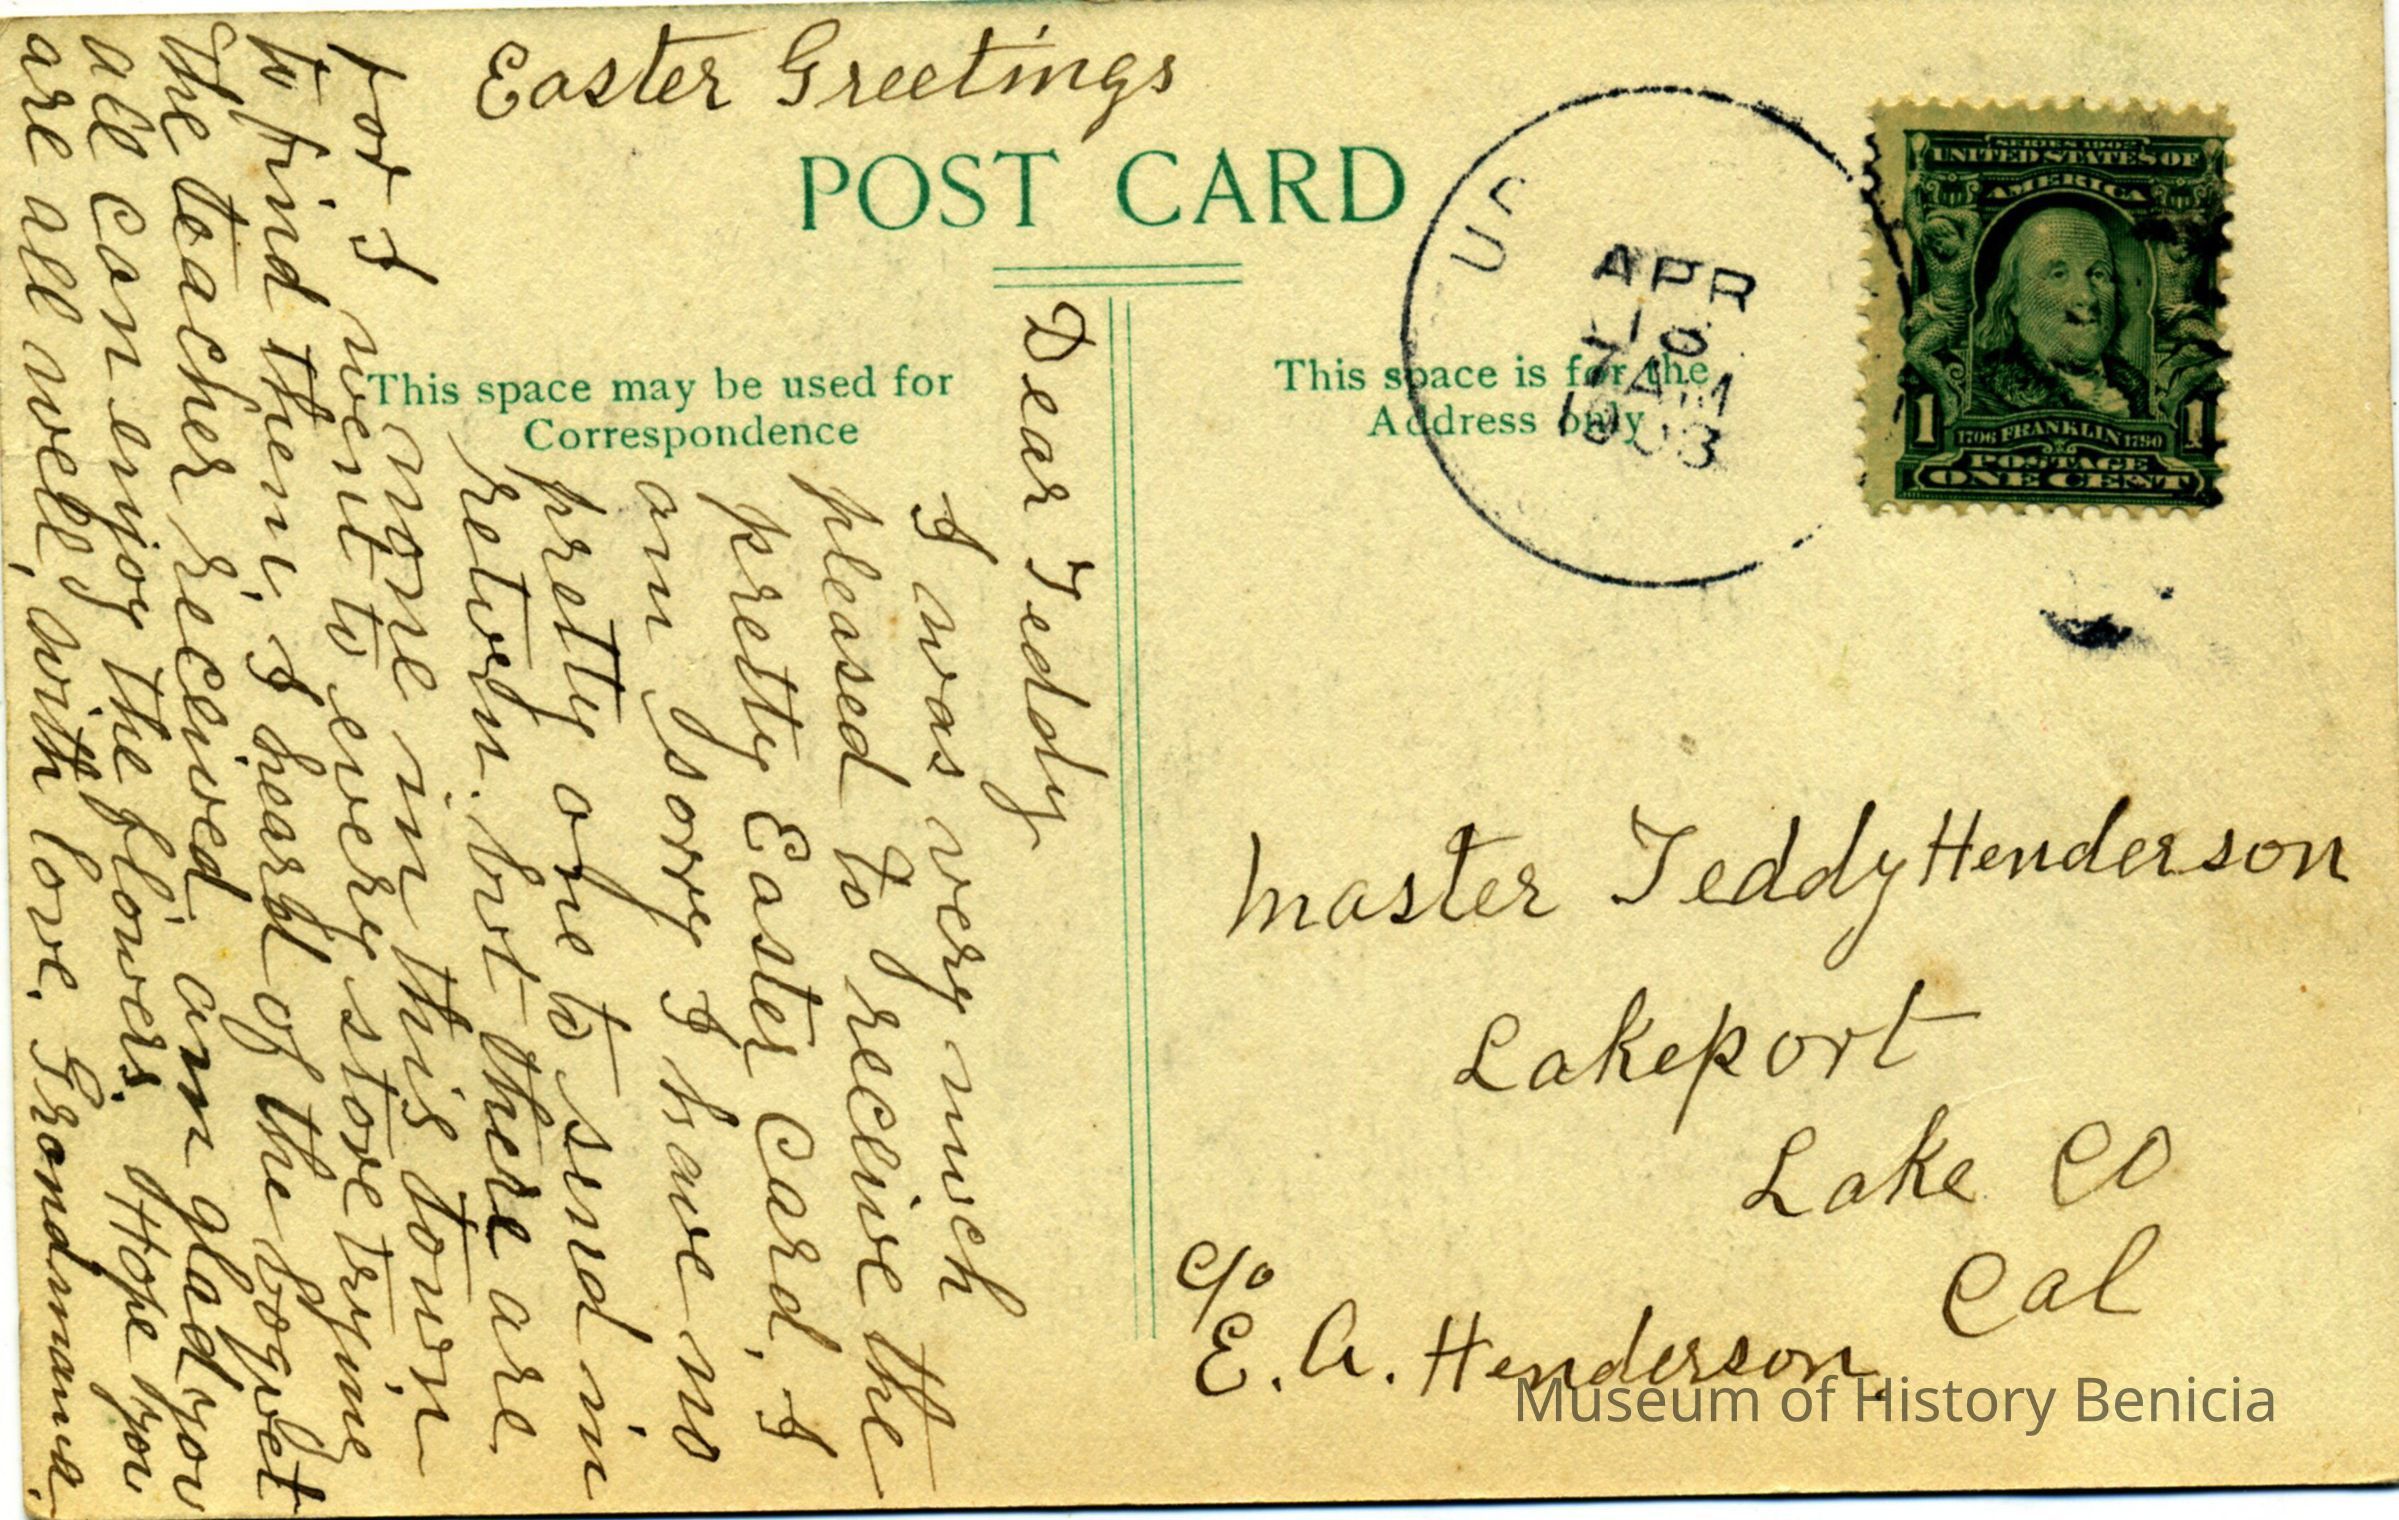 Easter Greetings
POST CARD
This space may be used for
Correspondence
This space is for the
Address only
Dear Teddy
I was very much
pleased to receive the
pretty Easter Card. I
am sorry I have no
pretty one to send in
return. but there are
none in this town
for I went to every store trying
to find them, I heard of the boquet
the teacher received am glad you
all can enjoy the flowers. Hope you
are all well, with love. Grandmama.
APR
7 AM
UNITED STATES OF
AMERICA
1 1
1706 FRANKLIN 1790
POSTAGE
ONE CENT
Master Teddy Henderson
Lakeport
Lake Co
Cal
c/o
E. A. Henderson.
Museum of History Benicia